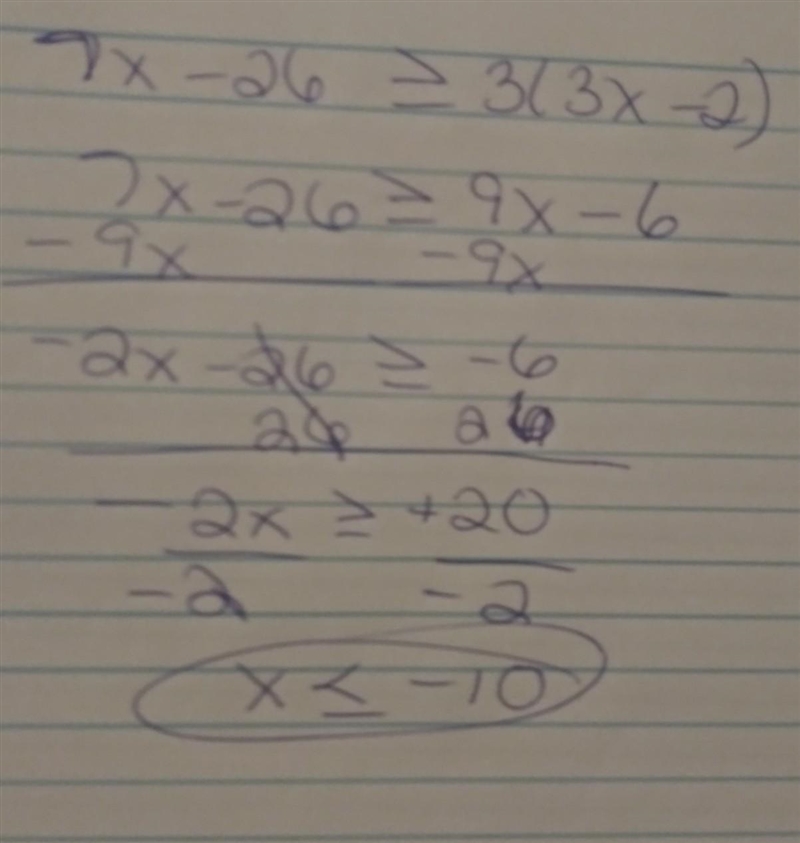 7x - 26 ≥ 3(3x - 2)
7x - 26 ≥ 9x - 6
- 9x - 9x
-2x - 26 ≥ -6
26 26
-2x ≥ +20
-2 -2
x ≤ -10